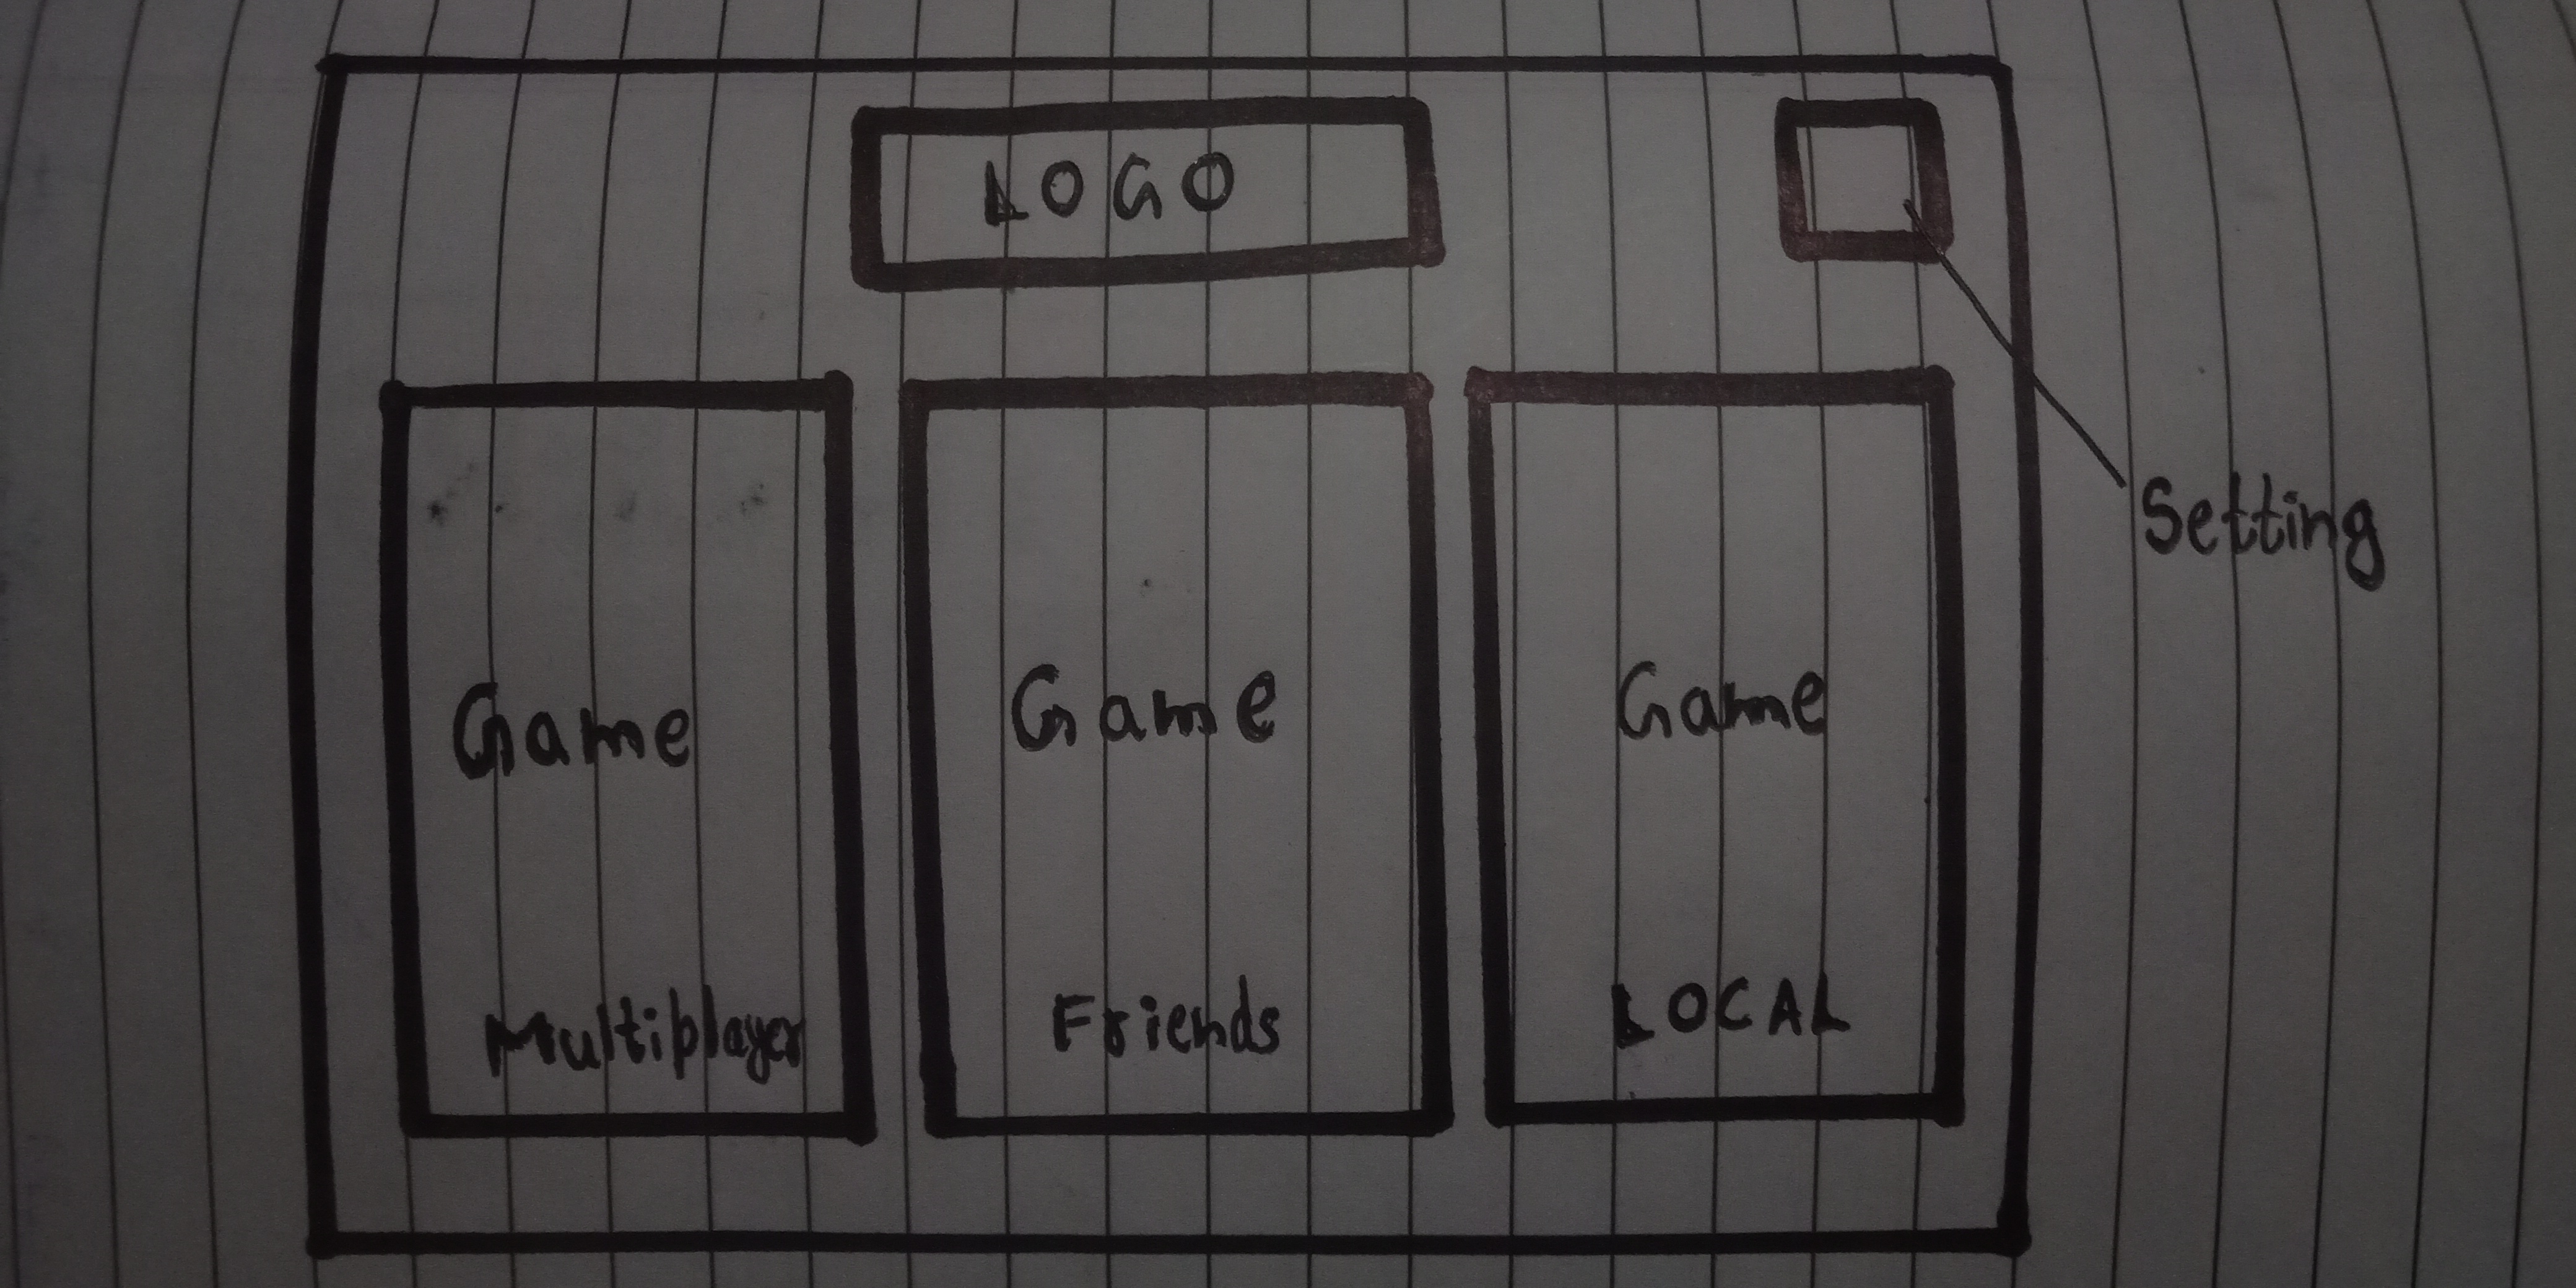 LOGO
Setting
Game
Multiplayer
Game
Friends
Game
LOCAL